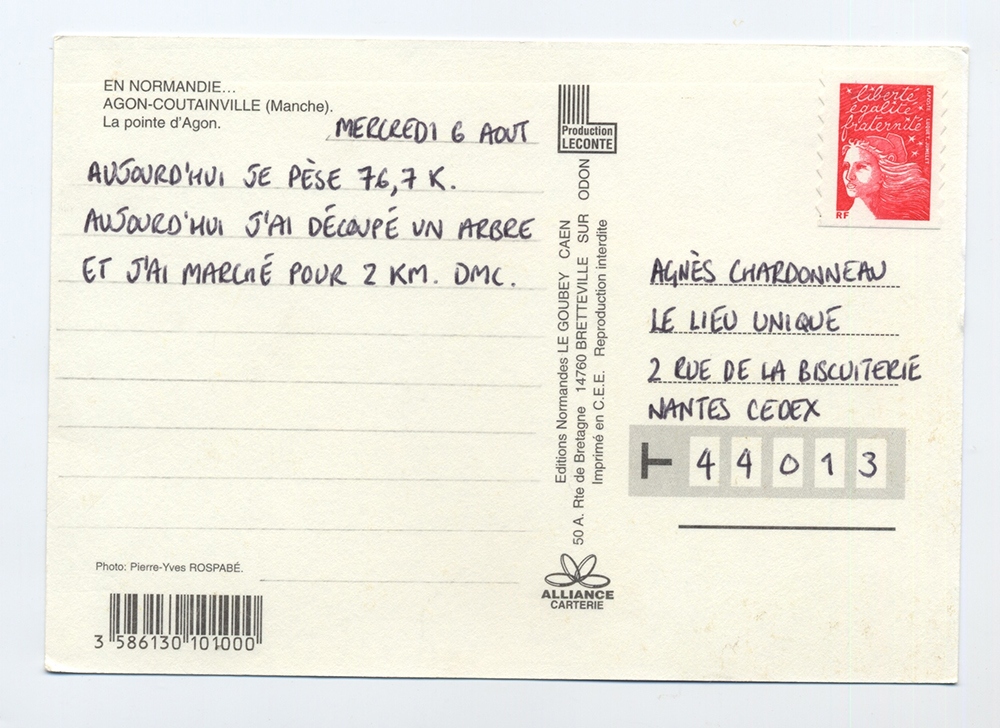 EN NORMANDIE...
AGON-COUTAINVILLE (Manche).
La pointe d'Agon.
MERCREDI 6 AOUT
AUJOURD'HUI JE PÈSE 76,7 K.
AUJOURD'HUI J'AI DÉCOUPÉ UN ARBRE
ET J'AI MARCHÉ POUR 2 KM. DMC.
Photo: Pierre-Yves ROSPABÉ.
3 586130 101000
Production
LECONTE
Editions Normandes LE GOUBEY CAEN
50 A. Rte de Bretagne 14760 BRETTEVILLE SUR ODON
Imprimé en C.E.E. Reproduction interdite
ALLIANCE
CARTERIE
liberté
égalité
fraternité
RF
AGNÈS CHARDONNEAU
LE LIEU UNIQUE
2 RUE DE LA BISCUITERIE
NANTES CEDEX
44013